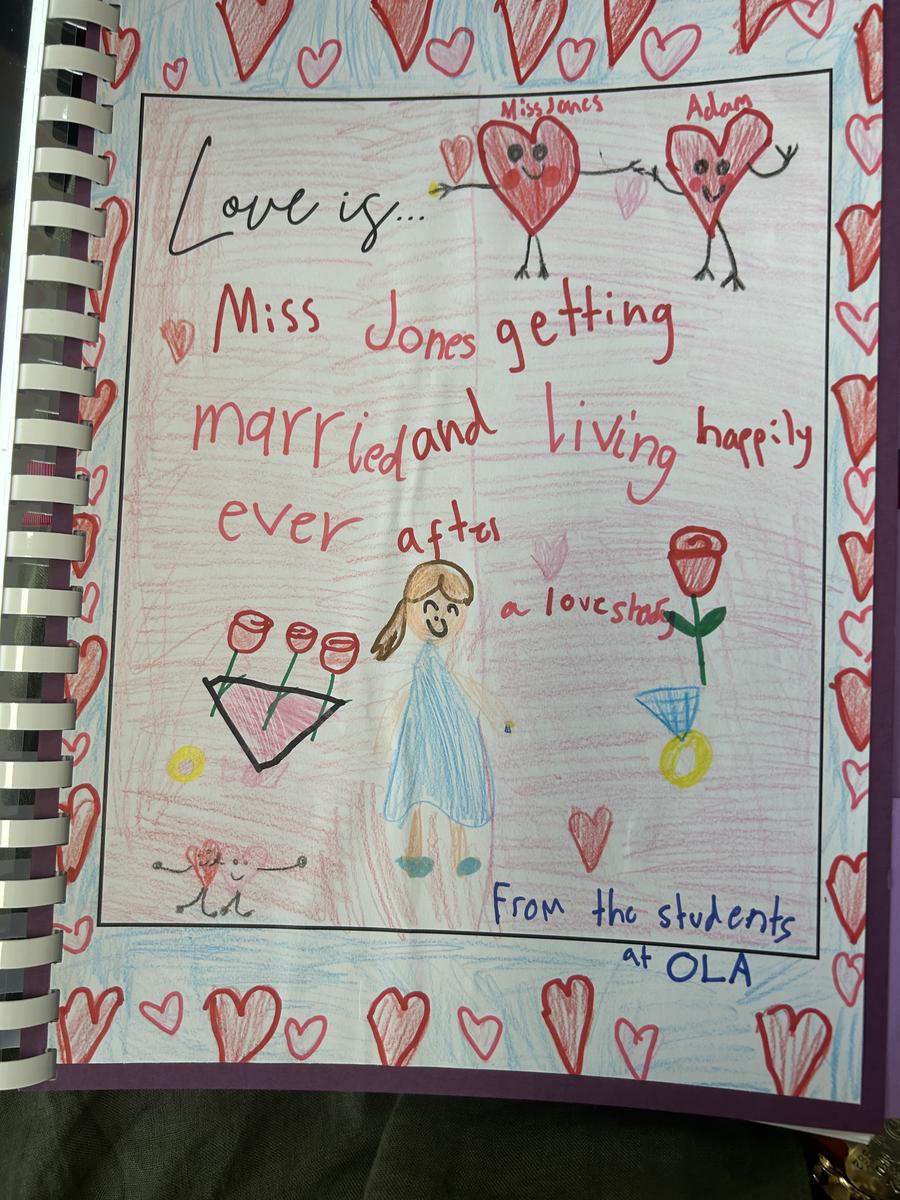 Miss Jones Adam
Love is...
Miss Jones getting
married and living happily
ever after
a love story
From the students
at OLA